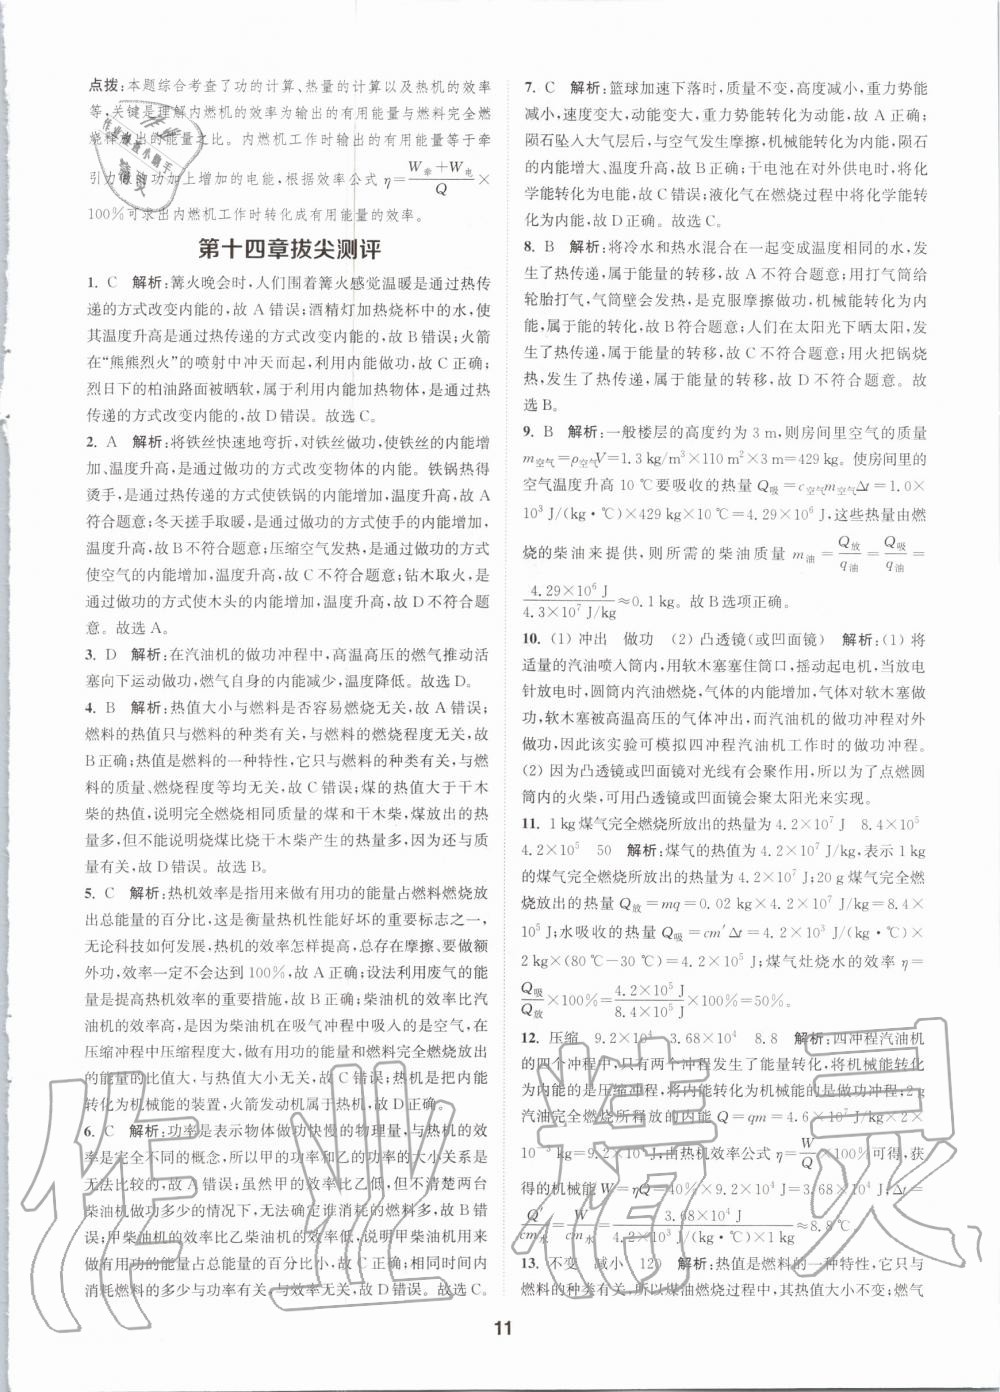 点拨:本题综合考查了功的计算、热量的计算以及热机的效率
等,关键是理解内燃机的效率为输出的有用能量与燃料完全燃
烧释放出的能量之比。内燃机工作时输出的有用能量等于牵
引力做的功加上增加的电能,根据效率公式 η=(W牵+W电)/Q×
100%可求出内燃机工作时转化成有用能量的效率。
第十四章拔尖测评
1. C 解析:篝火晚会时,人们围着篝火感觉温暖是通过热传
递的方式改变内能的,故 A 错误;酒精灯加热烧杯中的水,使
其温度升高是通过热传递的方式改变内能的,故 B 错误;火箭
在“熊熊烈火”的喷射中冲天而起,利用内能做功,故 C 正确;
烈日下的柏油路面被晒软,属于利用内能加热物体,是通过热
传递的方式改变内能的,故 D 错误。故选 C。
2. A 解析:将铁丝快速地弯折,对铁丝做功,使铁丝的内能增
加、温度升高,是通过做功的方式改变物体的内能。铁锅热得
烫手,是通过热传递的方式使铁锅的内能增加、温度升高,故 A
符合题意;冬天搓手取暖,是通过做功的方式使手的内能增加,
温度升高,故 B 不符合题意;压缩空气发热,是通过做功的方式
使空气的内能增加,温度升高,故 C 不符合题意;钻木取火,是
通过做功的方式使木头的内能增加,温度升高,故 D 不符合题
意。故选 A。
3. D 解析:在汽油机的做功冲程中,高温高压的燃气推动活
塞向下运动做功,燃气自身的内能减少,温度降低。故选 D。
4. B 解析:热值大小与燃料是否容易燃烧无关,故 A 错误;
燃料的热值只与燃料的种类有关,与燃料的燃烧程度无关,故
B 正确;热值是燃料的一种特性,它只与燃料的种类有关,与燃
料的质量、燃烧程度等均无关,故 C 错误;煤的热值大于干木
柴的热值,说明完全燃烧相同质量的煤和干木柴,煤放出的热
量多,但不能说明烧煤比烧干木柴产生的热量多,因为还与质
量有关,故 D 错误。故选 B。
5. C 解析:热机效率是指用来做有用功的能量占燃料燃烧放
出总能量的百分比,这是衡量热机性能好坏的重要标志之一,
无论科技如何发展,热机的效率怎样提高,总存在摩擦、要做额
外功,效率一定不会达到 100%,故 A 正确;设法利用废气的能
量是提高热机效率的重要措施,故 B 正确;柴油机的效率比汽
油机的效率高,是因为柴油机在吸气冲程中吸入的是空气,在
压缩冲程中压缩程度大,做有用功的能量和燃料完全燃烧放出
的能量的比值大,与热值无关,故 C 错误;热机是把内能
转化为机械能的装置,火箭发动机属于热机,故 D 正确。
6. C 解析:功率是表示物体做功快慢的物理量,与热机的效
率是完全不同的概念,所以甲的功率和乙的功率的大小关系是
无法比较的,故 A 错误;虽然甲的效率比乙低,但不清楚两台
柴油机做功多少的情况下,无法确定谁消耗的燃料多,故 B 错
误;甲柴油机的效率比乙柴油机的效率低,说明甲柴油机做有用
功的能量占总能量的百分比小,故 C 正确;相同时间内
消耗燃料的多少与功率和效率都有关,故 D 错误。故选 C。
7. C 解析:篮球加速下落时,质量不变,高度减小,重力势能
减小,速度变大,动能变大,重力势能转化为动能,故 A 正确;
陨石坠入大气层后,与空气发生摩擦,机械能转化为内能,陨石
的内能增大、温度升高,故 B 正确;干电池在对外供电时,将化
学能转化为电能,故 C 错误;液化气在燃烧过程中将化学能转
化为内能,故 D 正确。故选 C。
8. B 解析:将冷水和热水混合在一起变成温度相同的水,发
生了热传递,属于能量的转移,故 A 不符合题意;用打气筒给
轮胎打气,气筒壁会发热,是克服摩擦做功,机械能转化为内
能,属于能的转化,故 B 符合题意;人们在太阳光下晒太阳,发
生了热传递,属于能量的转移,故 C 不符合题意;用火把锅烧
热,发生了热传递,属于能量的转移,故 D 不符合题意。故
选 B。
9. B 解析:一般楼层的高度约为 3 m,则房间里空气的质量
m空气=ρ空气V=1.3 kg/m³×110 m²×3 m=429 kg。使房间里的
空气温度升高 10 ℃要吸收的热量 Q吸=c空气m空气Δt=1.0×
10³ J/(kg·℃)×429 kg×10 ℃=4.29×10⁶ J,这些热量由燃
烧的柴油来提供,则所需的柴油质量 m油=Q放/q油=Q吸/q油=
4.29×10⁶ J/4.3×10⁷ J/kg≈0.1 kg。故 B 选项正确。
10. (1) 冲出 做功 (2) 凸透镜(或凹面镜) 解析:(1) 将
适量的汽油喷入筒内,用软木塞塞住筒口,摇动起电机,当放电
针放电时,圆筒内汽油燃烧,气体的内能增加,气体对软木塞做
功,软木塞被高温高压的气体冲出,而汽油机的做功冲程对外
做功,因此该实验可模拟四冲程汽油机工作时的做功冲程。
(2) 因为凸透镜或凹面镜对光线有会聚作用,所以为了点燃圆
筒内的火柴,可用凸透镜或凹面镜会聚太阳光来实现。
11. 1 kg煤气完全燃烧所放出的热量为 4.2×10⁷ J 8.4×10⁵
4.2×10⁵ 50 解析:煤气的热值为 4.2×10⁷ J/kg,表示 1 kg
的煤气完全燃烧所放出的热量为 4.2×10⁷ J;20 g煤气完全燃
烧放出的热量 Q放=mq=0.02 kg×4.2×10⁷ J/kg=8.4×
10⁵ J;水吸收的热量 Q吸=cm′Δt=4.2×10³ J/(kg·℃)×
2 kg×(80 ℃-30 ℃)=4.2×10⁵ J;煤气灶烧水的效率 η=
Q吸/Q放×100%=4.2×10⁵ J/8.4×10⁵ J×100%=50%。
12. 压缩 9.2×10⁴ 3.68×10⁴ 8.8 解析:四冲程汽油机
的四个冲程中,只有两个冲程发生了能量转化,将机械能转化
为内能的是压缩冲程,将内能转化为机械能的是做功冲程;2 g
汽油完全燃烧所释放的内能 Q=qm=4.6×10⁷ J/kg×2×
10⁻³ kg=9.2×10⁴ J;由热机效率公式 η=W/Q×100%可得,获
得的机械能 W=ηQ=40%×9.2×10⁴ J=3.68×10⁴ J,Δt=
Q′/cm水=W/cm水=3.68×10⁴ J/4.2×10³ J/(kg·℃)×1 kg≈8.8 ℃。
13. 不变 减小 120 解析:热值是燃料的一种特性,它只与燃
料的种类有关,所以煤油燃烧过程中,其热值大小不变;燃气
11
作业精灵